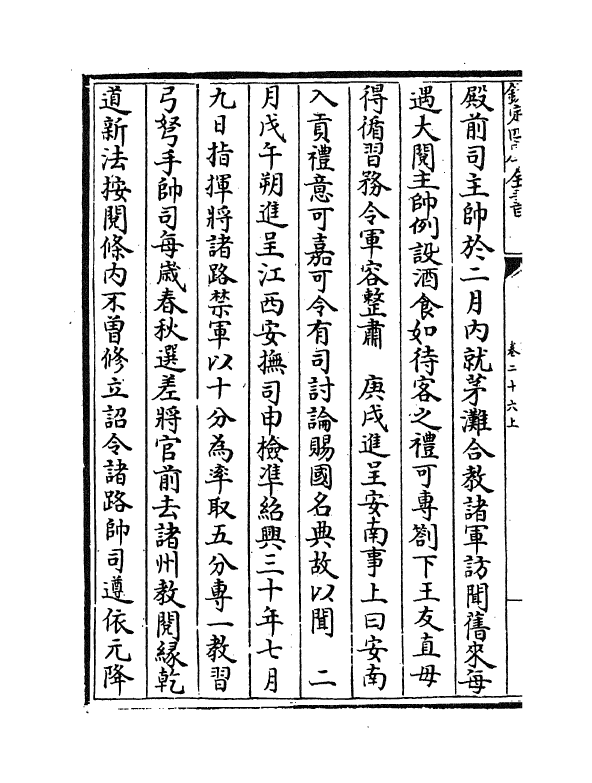 欽定四庫全書
卷二十六上
殿前司主帥於二月內就茅灘合教諸軍訪聞舊來每
遇大閱主帥例設酒食如待客之禮可專劄下王友直毋
得循習務令軍容整肅　庚戌進呈安南事上曰安南
入貢禮意可嘉可令有司討論賜國名典故以聞　二
月戊午朔進呈江西安撫司申檢準紹興三十年七月
九日指揮將諸路禁軍以十分為率取五分專一教習
弓弩手帥司每歲春秋選差將官前去諸州教閱緣乾
道新法按閱條內不曾修立詔令諸路帥司遵依元降